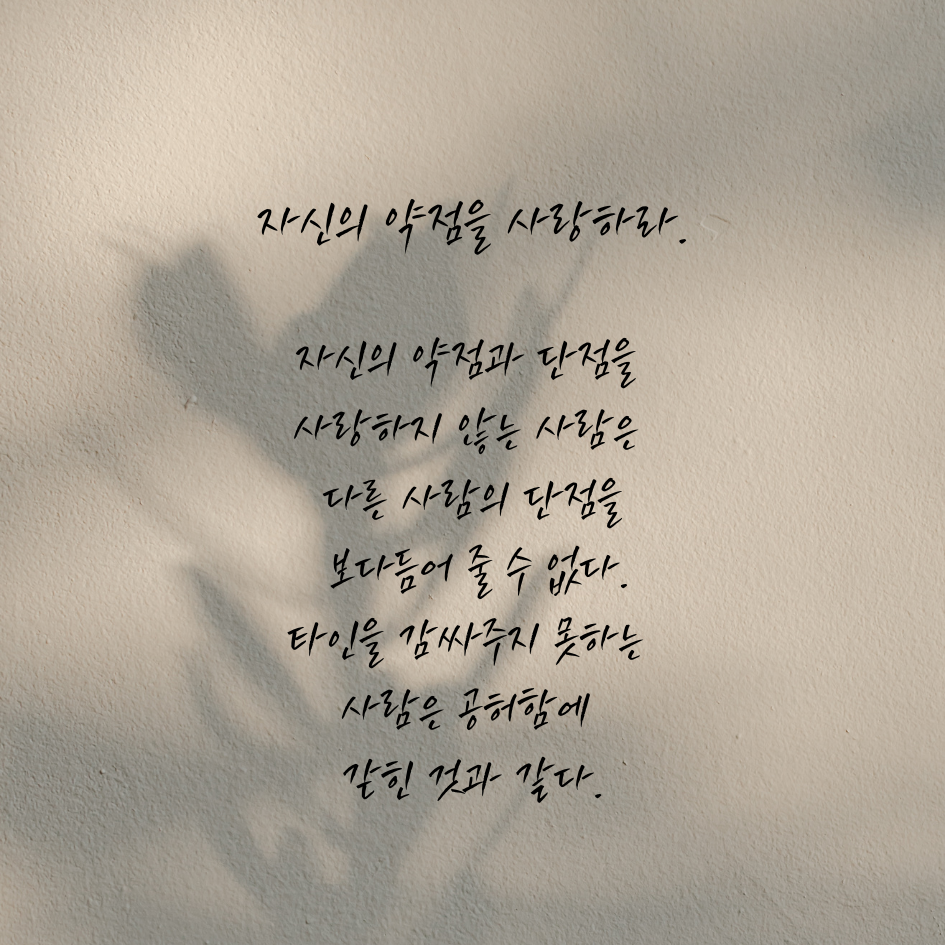 자신의 약점을 사랑하라.
자신의 약점과 단점을
사랑하지 않는 사람은
다른 사람의 단점을
보다듬어 줄 수 없다.
타인을 감싸주지 못하는
사람은 공허함에
갇힌 것과 같다.